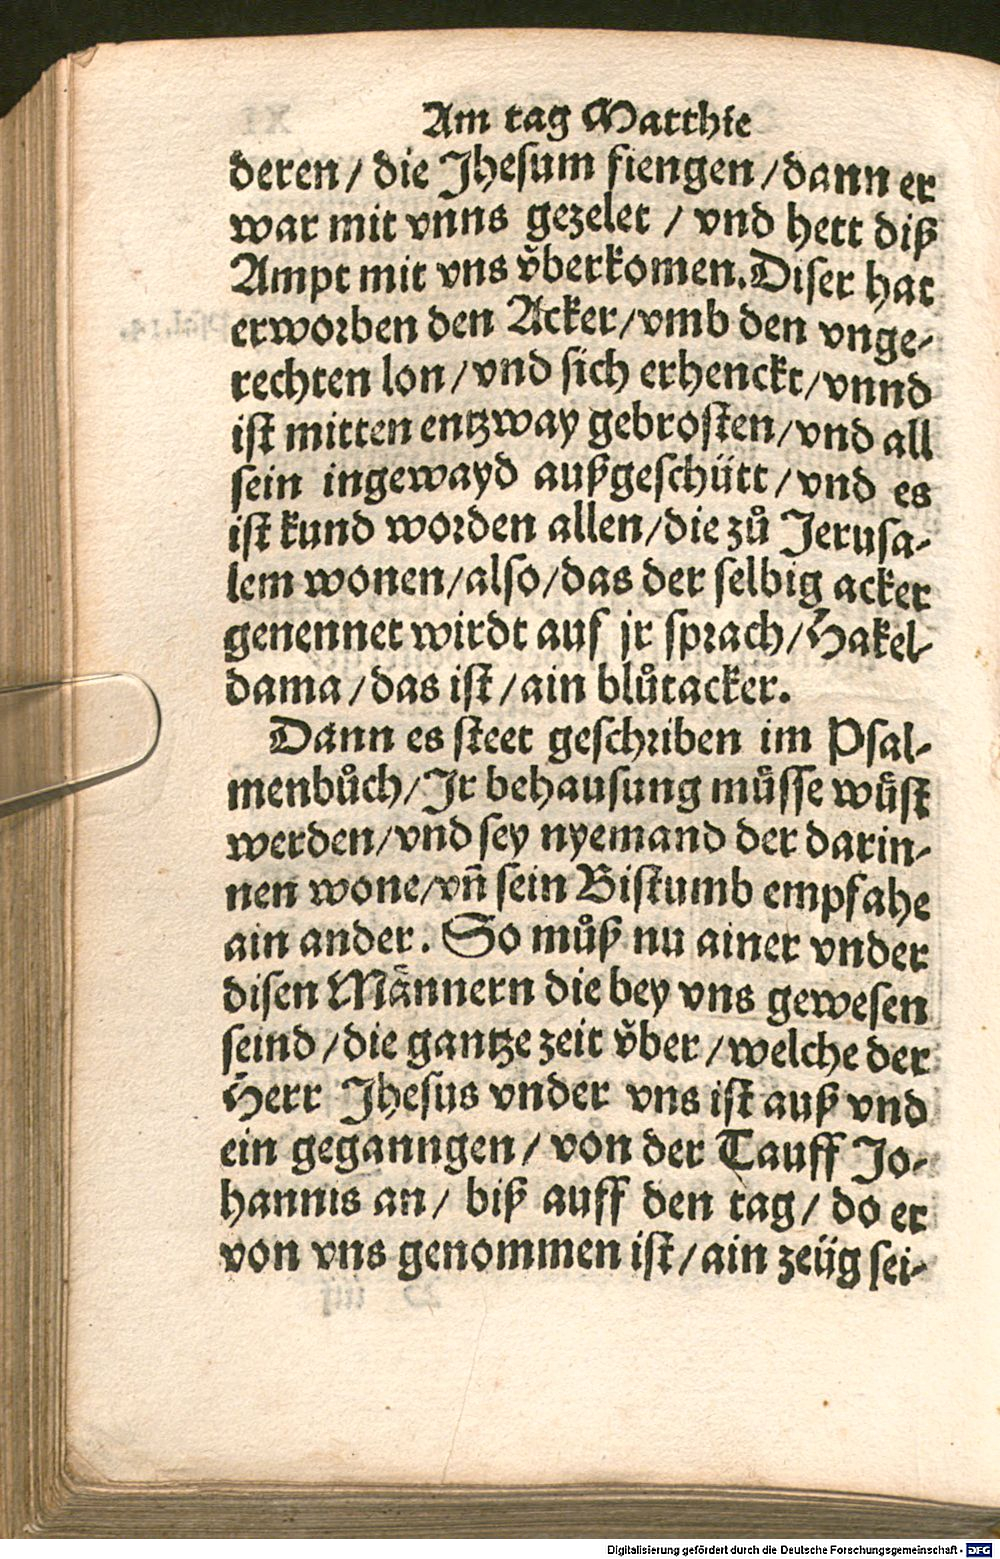 Am tag Matthie
deren / die Jhesum fiengen / dann er
war mit vnns gezelet / vnd hett diß
Ampt mit vns vͤberkomen. Diser hat
erworben den Acker / vmb den vnge-
rechten lon / vnd sich erhenckt / vnnd
ist mitten entzway gebrosten / vnd all
sein ingewayd außgeschütt / vnd es
ist kund worden allen / die zuͦ Jerusa-
lem wonen / also / das der selbig acker
genennet wirdt auf jr sprach / Hakel-
dama / das ist / ain bluͦtacker.
Dann es steet geschriben im Psal-
menbuͦch / Jr behausung muͤsse wuͤst
werden / vnd sey nyemand der darin-
nen wone / vñ sein Bistumb empfahe
ain ander. So muͦß nu ainer vnder
disen Maͤnnern die bey vns gewesen
seind / die gantze zeit vͤber / welche der
Herr Jhesus vnder vns ist auß vnd
ein geganngen / von der Tauff Jo-
hannis an / biß auff den tag / do er
von vns genommen ist / ain zeüg sei-
Digitalisierung gefördert durch die Deutsche Forschungsgemeinschaft - DFG